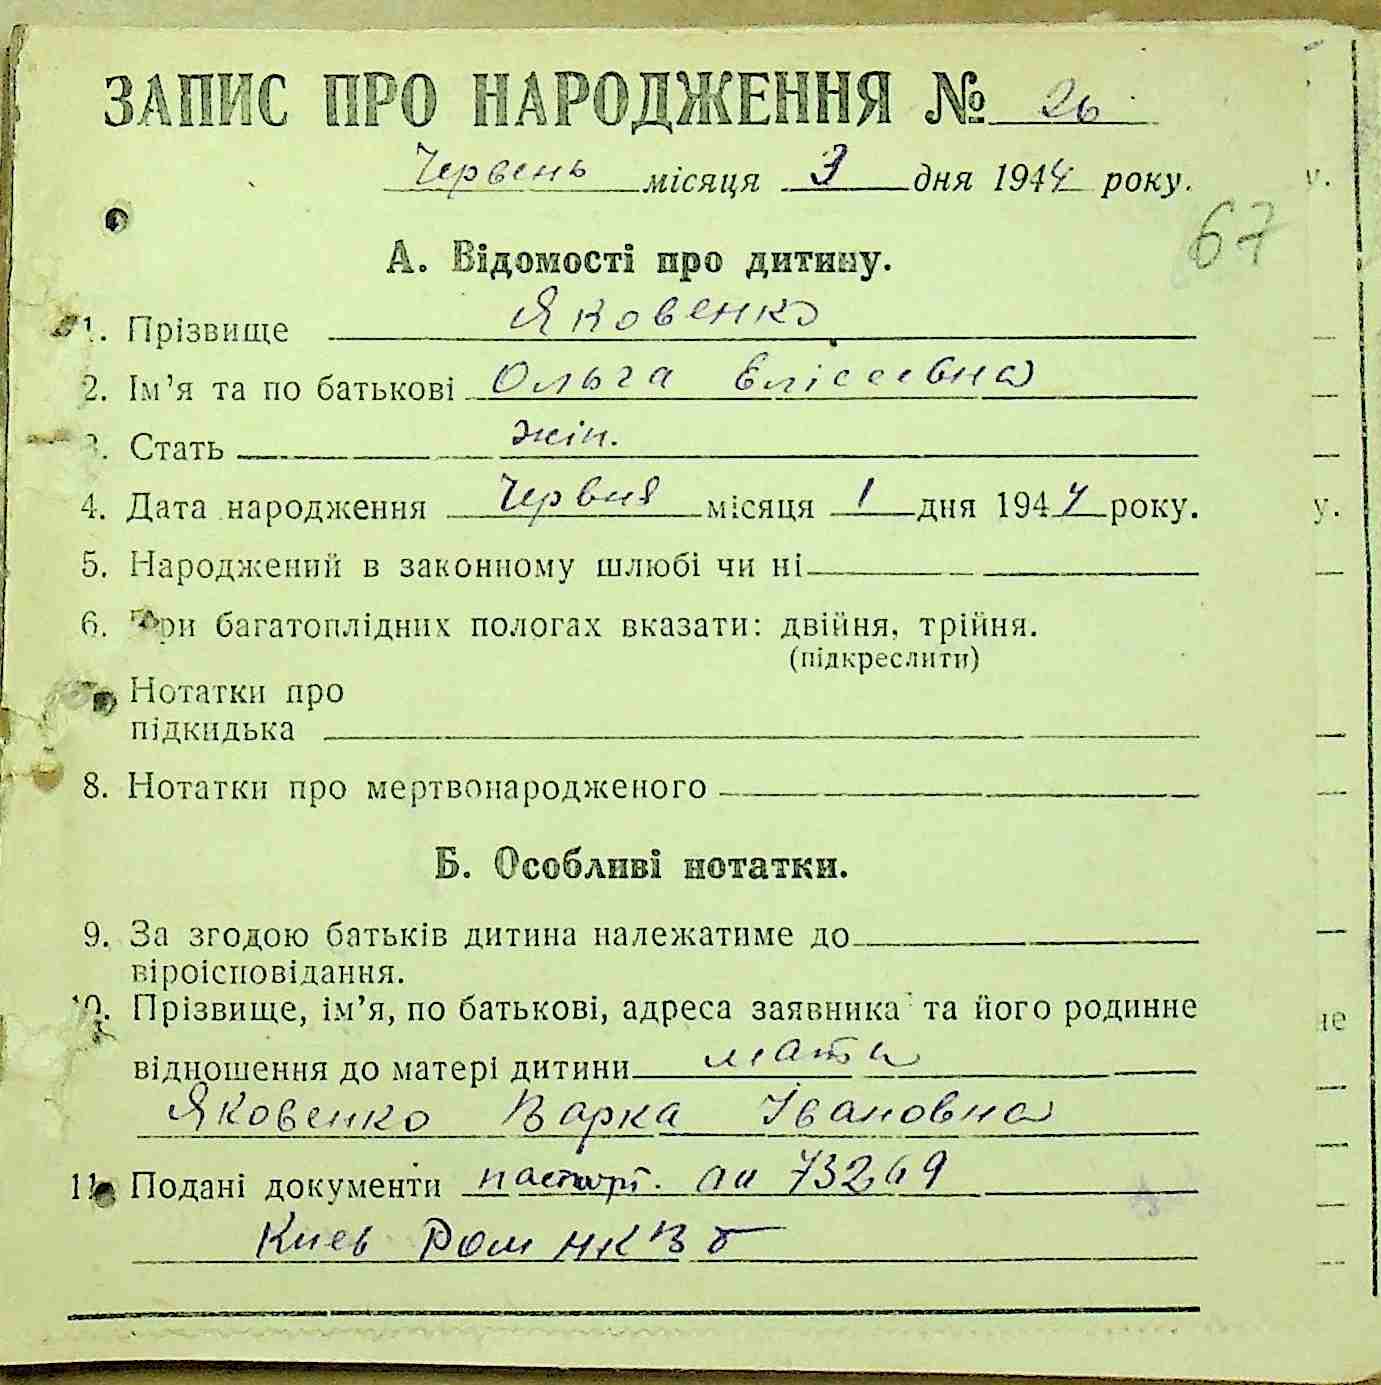 ЗАПИС ПРО НАРОДЖЕННЯ № 26
Червень місяця 3 дня 1944 року.
67
А. Відомості про дитину.
1. Прізвище Яковенко
2. Ім’я та по батькові Ольга Елісеевна
3. Стать жін.
4. Дата народження Червня місяця 1 дня 1944 року.
5. Народжений в законному шлюбі чи ні
6. При багатоплідних пологах вказати: двійня, трійня.
(підкреслити)
Нотатки про
підкидька
8. Нотатки про мертвонародженого
Б. Особливі нотатки.
9. За згодою батьків дитина належатиме до
віроісповідання.
10. Прізвище, ім’я, по батькові, адреса заявника та його родинне
відношення до матері дитини мати
Яковенко Варка Івановна
11. Подані документи паспорт. 73269
Киев НКВ